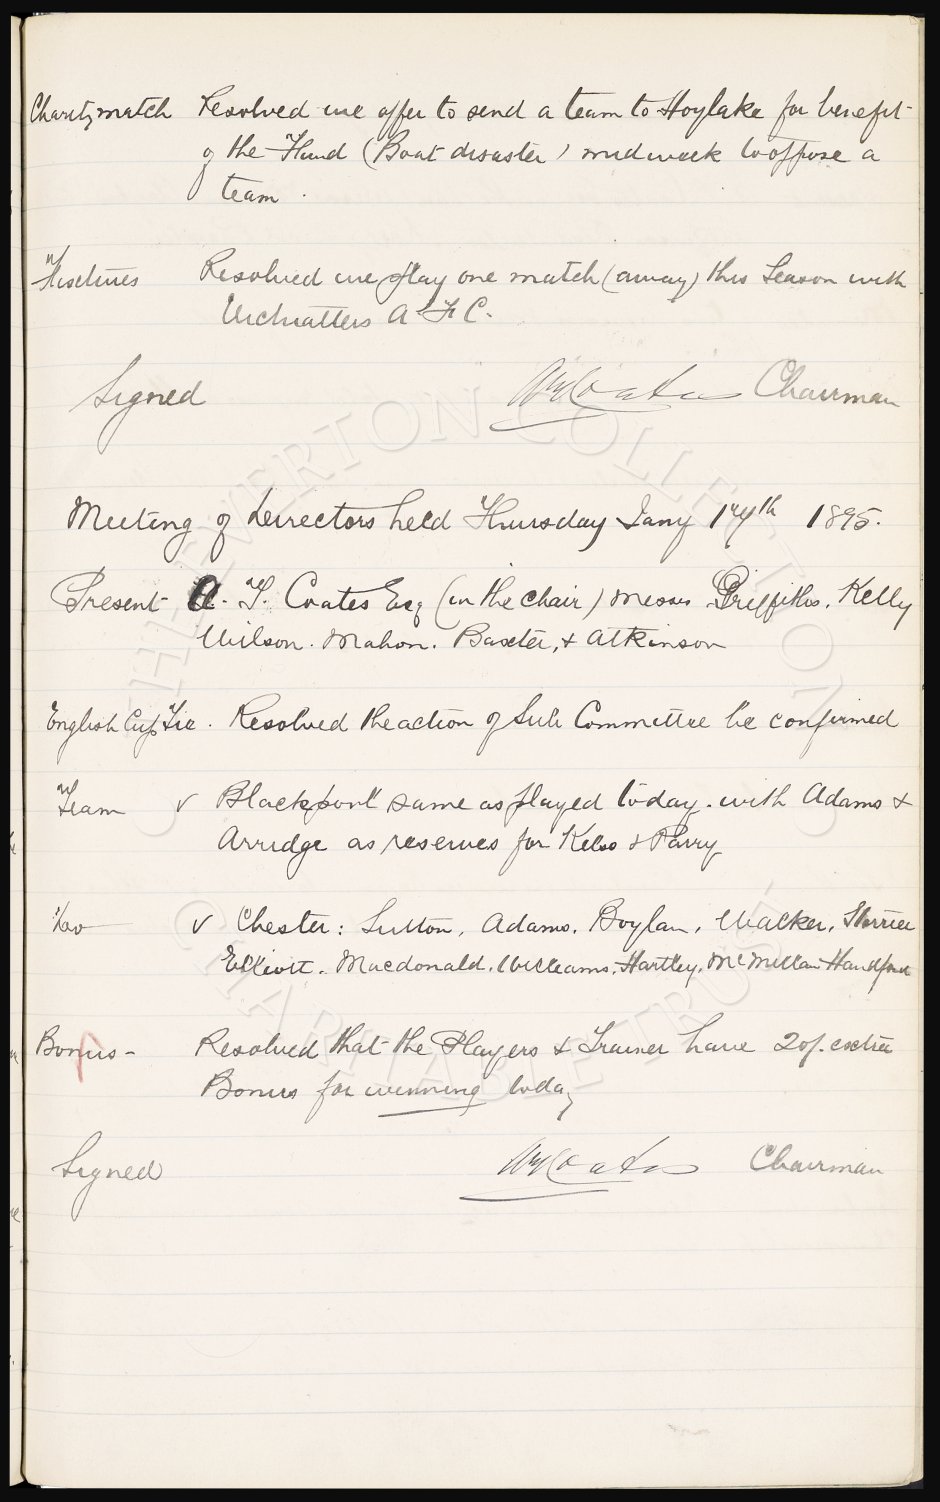 Charity match Resolved we offer to send a team to Hoylake for benefit
of the Fund (Boat disaster) midweek to oppose a
team.
Fixtures Resolved we play one match (away) this Season with
A F C.
Signed Chairman
Meeting of Directors held Thursday Jany 17th 1895.
Present A. T. Coates Esq (in the chair) Messrs Griffiths, Kelly
Wilson. Mahon. Baxter, & Atkinson
English Cup Tie. Resolved the action of Sub Committee be confirmed
Team v Blackpool same as played today. with Adams &
Arridge as reserves for Kelso & Parry
v Chester: Sutton, Adams. Boylan, Walker, Storrier
Elliott. Macdonald. Williams. Hartley. McMillan Handford
Bonus - Resolved that the Players & Trainer have 20/. extra
Bonus for winning today
Signed Chairman
THE EVERTON COLLECTION
CHARITABLE TRUST